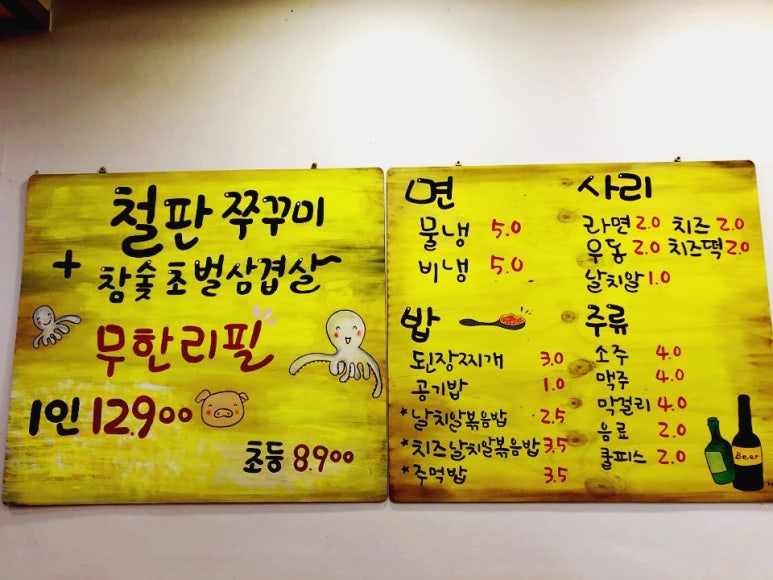 철판 쭈꾸미
+ 참숯초벌삼겹살
무한리필
1인 12.900
초등 8.900
면
물냉 5.0
비냉 5.0
사리
라면 2.0 치즈 2.0
우동 2.0 치즈떡 2.0
날치알 1.0
밥
된장찌개 3.0
공기밥 1.0
*날치알볶음밥 2.5
*치즈날치알볶음밥 3.5
*주먹밥 3.5
주류
소주 4.0
맥주 4.0
막걸리 4.0
음료 2.0
쿨피스 2.0
Beer